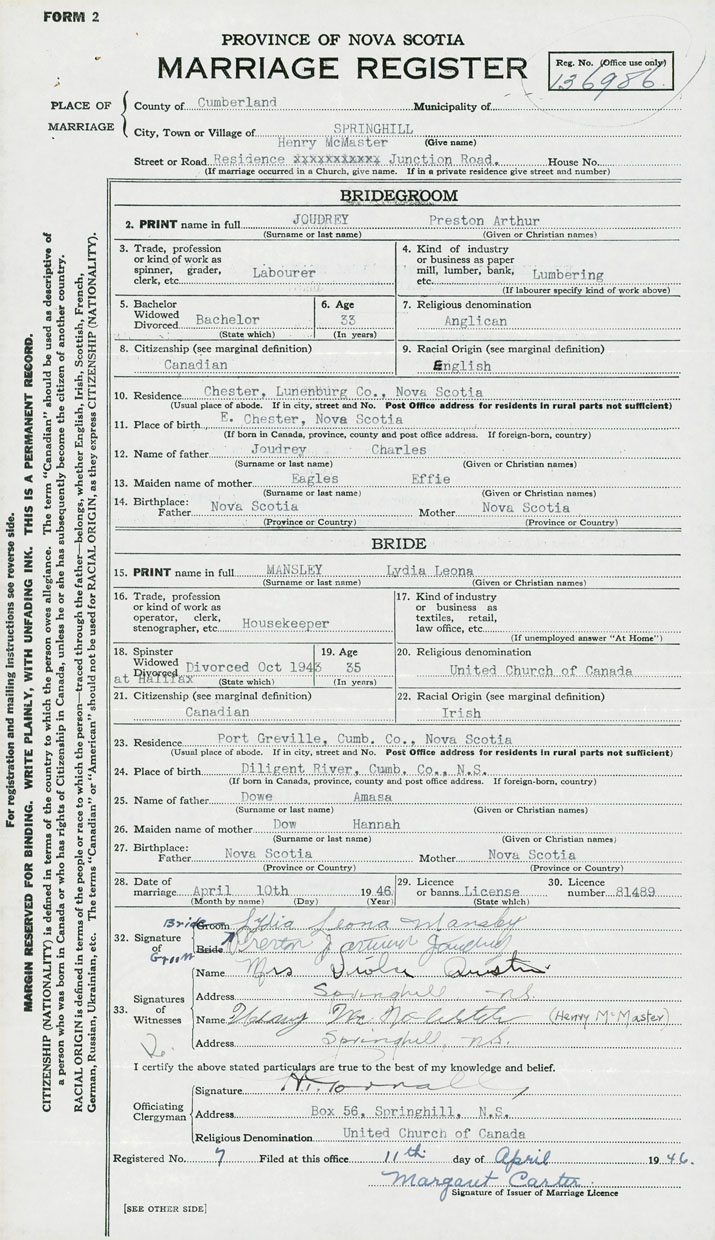 FORM 2
PROVINCE OF NOVA SCOTIA
MARRIAGE REGISTER
Reg. No. (Office use only)
136986
PLACE OF MARRIAGE
County of Cumberland Municipality of
City, Town or Village of SPRINGHILL
Henry McMaster (Give name)
Street or Road Residence xxxxxxxxxxx Junction Road. House No.
(If marriage occurred in a Church, give name. If in a private residence give street and number)
BRIDEGROOM
2. PRINT name in full JOUDREY Preston Arthur
(Surname or last name) (Given or Christian names)
3. Trade, profession or kind of work as spinner, grader, clerk, etc. Labourer
4. Kind of industry or business as paper mill, lumber, bank, etc. Lumbering
(If labourer specify kind of work above)
5. Bachelor Widowed Divorced Bachelor
(State which)
6. Age 33
(In years)
7. Religious denomination
Anglican
8. Citizenship (see marginal definition)
Canadian
9. Racial Origin (see marginal definition)
English
10. Residence Chester, Lunenburg Co., Nova Scotia
(Usual place of abode. If in city, street and No. Post Office address for residents in rural parts not sufficient)
11. Place of birth E. Chester, Nova Scotia
(If born in Canada, province, county and post office address. If foreign-born, country)
12. Name of father Joudrey Charles
(Surname or last name) (Given or Christian names)
13. Maiden name of mother Eagles Effie
(Surname or last name) (Given or Christian names)
14. Birthplace: Father Nova Scotia Mother Nova Scotia
(Province or Country) (Province or Country)
BRIDE
15. PRINT name in full MANSLEY Lydia Leona
(Surname or last name) (Given or Christian names)
16. Trade, profession or kind of work as operator, clerk, stenographer, etc. Housekeeper
17. Kind of industry or business as textiles, retail, law office, etc.
(If unemployed answer "At Home")
18. Spinster Widowed Divorced Divorced Oct 1943
at Halifax (State which)
19. Age 35
(In years)
20. Religious denomination
United Church of Canada
21. Citizenship (see marginal definition)
Canadian
22. Racial Origin (see marginal definition)
Irish
23. Residence Port Greville, Cumb. Co., Nova Scotia
(Usual place of abode. If in city, street and No. Post Office address for residents in rural parts not sufficient)
24. Place of birth Diligent River, Cumb. Co., N.S.
(If born in Canada, province, county and post office address. If foreign-born, country)
25. Name of father Dowe Amasa
(Surname or last name) (Given or Christian names)
26. Maiden name of mother Dow Hannah
(Surname or last name) (Given or Christian names)
27. Birthplace: Father Nova Scotia Mother Nova Scotia
(Province or Country) (Province or Country)
28. Date of marriage April 10th 1946
(Month by name) (Day) (Year)
29. Licence or banns License
(State which)
30. Licence number 81489
32. Signature of
Bride Groom Lydia Leona Mansley
Groom Bride
Name Mrs Viola
Address Springhill n.s.
33. Signatures of Witnesses
Name (Henry McMaster)
Address Springhill, n.s.
I certify the above stated particulars are true to the best of my knowledge and belief.
Officiating Clergyman
Signature
Address Box 56, Springhill, N.S.
Religious Denomination United Church of Canada
Registered No. 7 Filed at this office 11th day of April 1946.
Margaret Carter
Signature of Issuer of Marriage Licence
[SEE OTHER SIDE]
For registration and mailing instructions see reverse side.
MARGIN RESERVED FOR BINDING. WRITE PLAINLY, WITH UNFADING INK. THIS IS A PERMANENT RECORD.
CITIZENSHIP (NATIONALITY) is defined in terms of the country to which the person owes allegiance. The term "Canadian" should be used as descriptive of
a person who was born in Canada or who has rights of Citizenship in Canada, unless he or she has subsequently become the citizen of another country.
RACIAL ORIGIN is defined in terms of the people or race to which the person—traced through the father—belongs, whether English, Irish, Scottish, French,
German, Russian, Ukrainian, etc. The terms "Canadian" or "American" should not be used for RACIAL ORIGIN, as they express CITIZENSHIP (NATIONALITY).